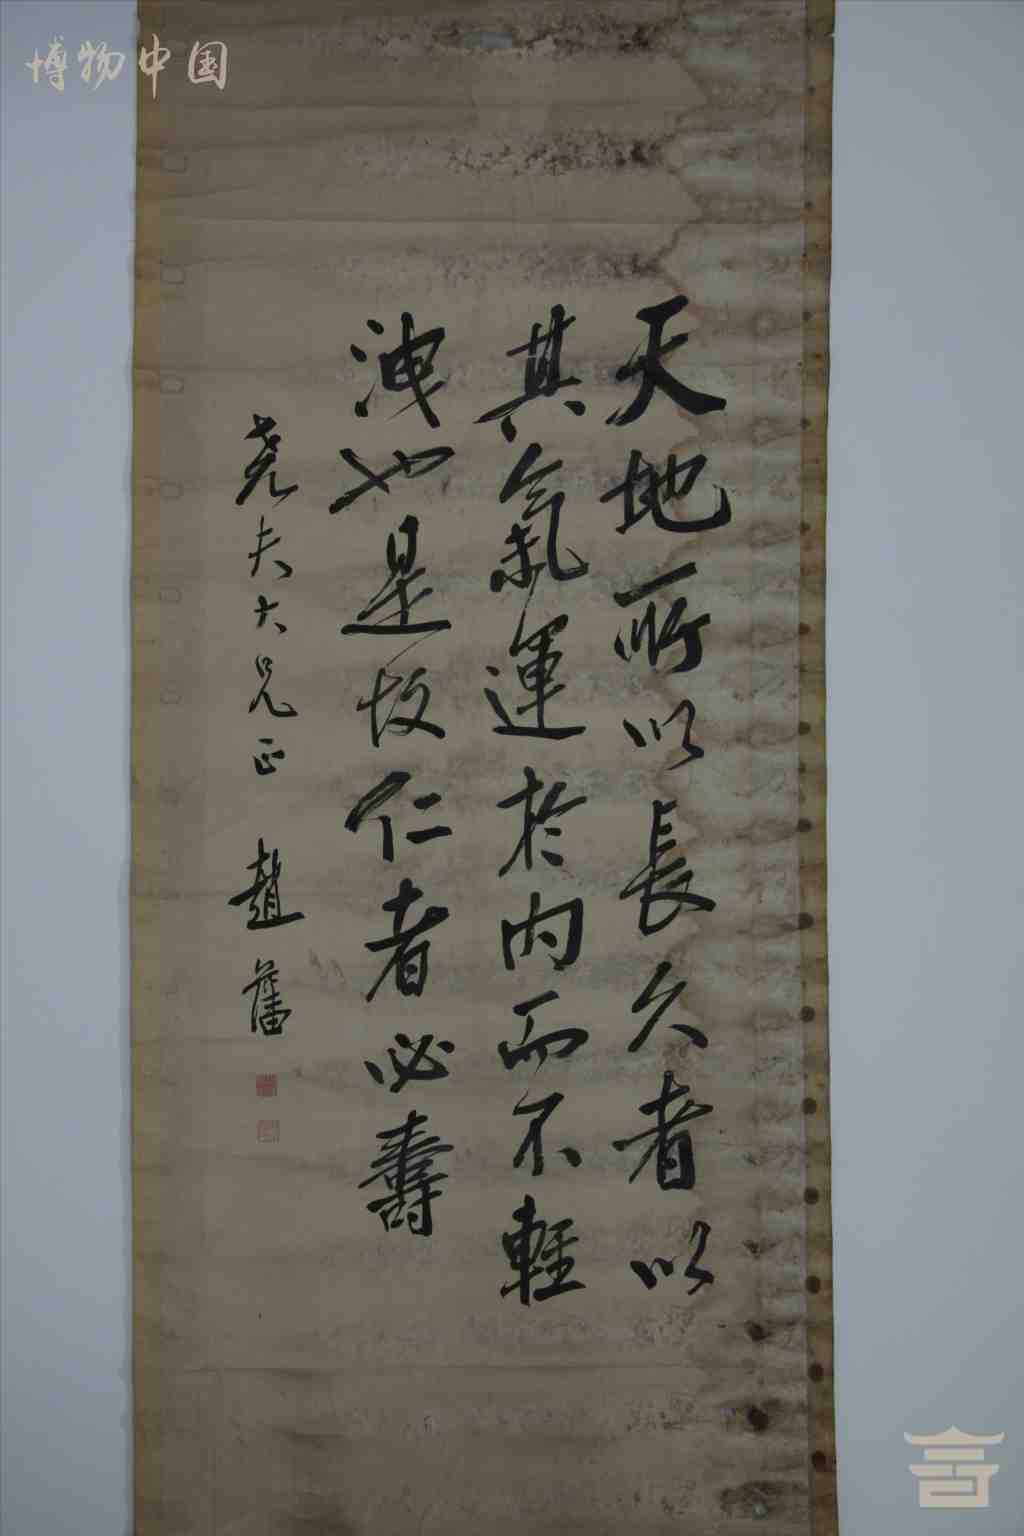 博物中国
天地所以長久者以
其氣運於內而不輕
洩也是故仁者必壽
堯夫大兄正 趙藩